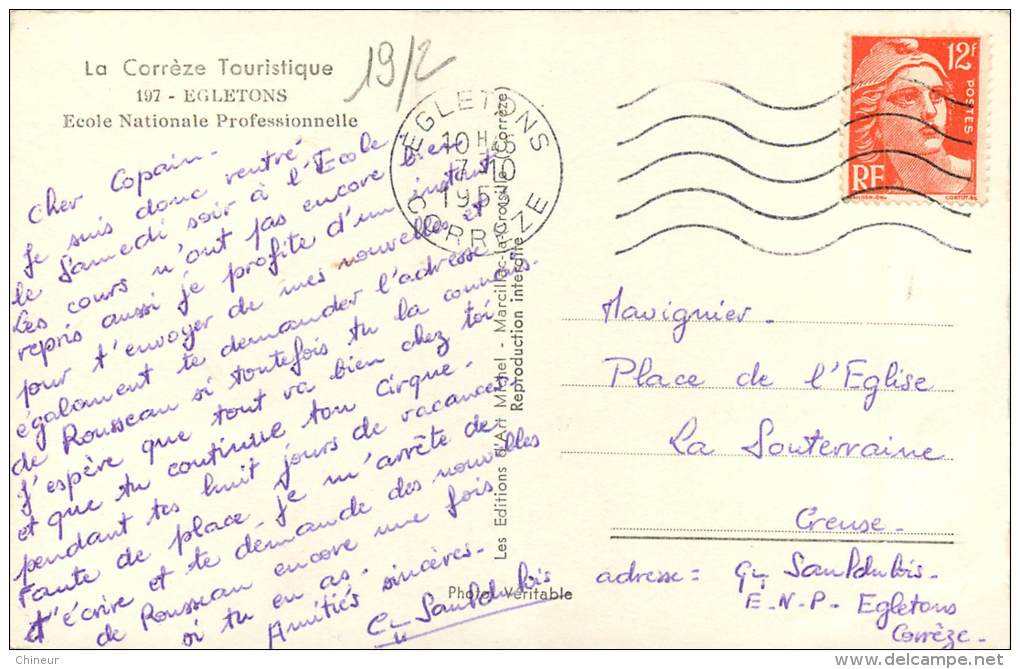 La Corrèze Touristique
197 - EGLETONS
Ecole Nationale Professionnelle
19/2
Cher Copain.
Je suis donc rentré
le samedi soir à l'Ecole
Les cours n'ont pas encore bien
repris aussi je profite d'un instant
pour t'envoyer de mes nouvelles et
également te demander l'adresse
de Rousseau si toutefois tu la connais.
J'espère que tout va bien chez toi
et que tu continue ton cirque.
pendant tes huit jours de vacances
Faute de place je m'arrête de
t'écrire et te demande des nouvelles
de Rousseau encore une fois
si tu en as.
Amitiés sincères.
Les Editions d'Art Michel - Marcillac-la-Croisille (Corrèze)
Reproduction interdite
Photo Véritable
EGLETONS
10 H
7-10
195
CORRÈZE
12F
POSTES
RF
Mavignier.
Place de l'Eglise
La Souterraine
Creuse.
adresse =
E.N.P. Egletons
Corrèze.
Chineur
delcampe.net